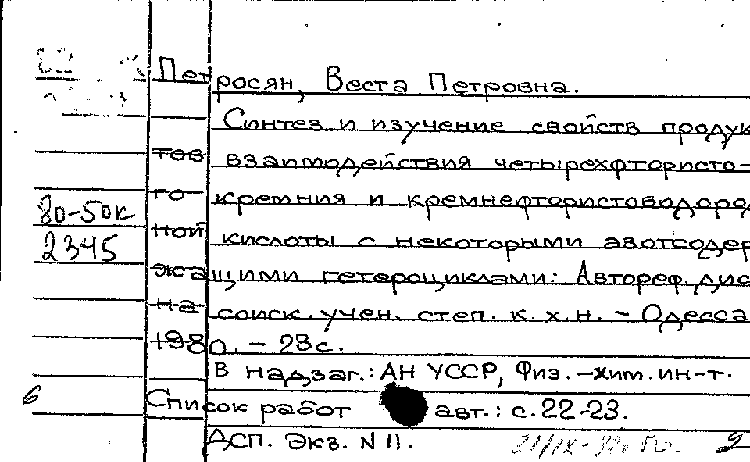 Петросян, Веста Петровна.
Синтез и изучение свойств продук
тов взаимодействия четырехфтористо-
го кремния и кремнефтористоводород
80-50к
ной кислоты с некоторыми азотсодер
2345
жащими гетероциклами: Автореф. дис
на соиск. учен. степ. к. х. н. - Одесса
1980. - 23с.
В надзаг.: АН УССР, Физ.-хим. ин-т.
6
Список работ авт.: с. 22-23.
ДСП. Экз. N 11.